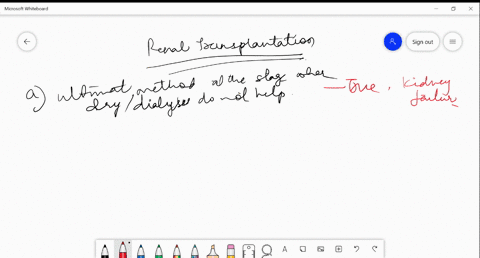 Microsoft Whiteboard
Sign out
Renal Transplantation
a) ultimat method at the stag when
drg/dialyses do not help.
— True, Kidney
failur